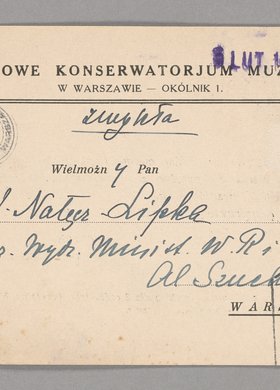 LUT. 1
OWE KONSERWATORJUM MUZ
W WARSZAWIE — OKÓLNIK 1.
Wielmożn y Pan
Nałęcz-Lipka
Wydz. Minist. W. R i
Al Szuch
WAR